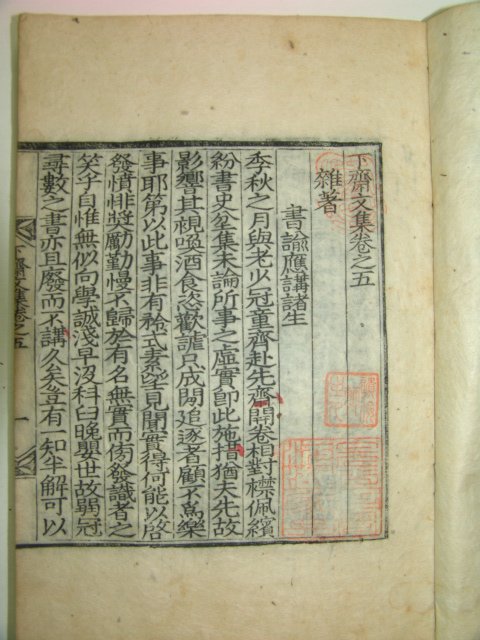 下齋文集卷之五
雜著
書諭應講諸生
季秋之月與老少冠童齊赴先齋開卷相對襟佩繽
紛書史坌集未論所事之虛實卽此施措猶夫先故
影響其視喚酒食恣歡謔只成閒追逐者顧不爲樂
事耶第以此事非有矜式素望見聞實得何能以啓
發憤悱奬勵勤慢不歸於有名無實而傍發識者之
笑乎自惟無似向學誠淺早沒科臼晩嬰世故弱冠
尋數之書亦且廢而不講久矣豈有一知半解可以
下齋文集卷之五
一